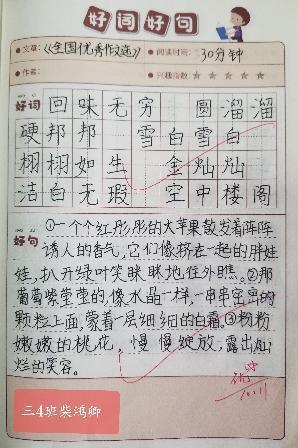 好词好句
文章：《全国优秀作文选》 阅读时间：30分钟
作者： 兴趣指数：☆☆☆☆☆
好词 回味无穷 圆溜溜
硬邦邦 雪白雪白
栩栩如生 金灿灿
洁白无瑕 空中楼阁
好句 ①一个个红彤彤的大苹果散发着阵阵
诱人的香气，它们像挤在一起的胖娃
娃，扒开绿叶笑眯眯地往外瞧。②那
葡萄紫莹莹的，像水晶一样，一串串密密的
颗粒上面，蒙着一层细细的白霜。③粉粉
嫩嫩的桃花，慢慢绽放，露出灿
烂的笑容。
三4班柴鸿卿